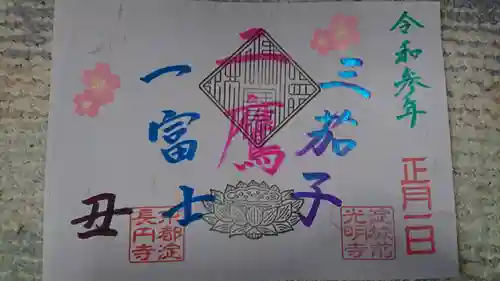 令和参年
正月一日
三茄子
二鷹
一富士
丑
淀
光明寺
都淀
長円寺